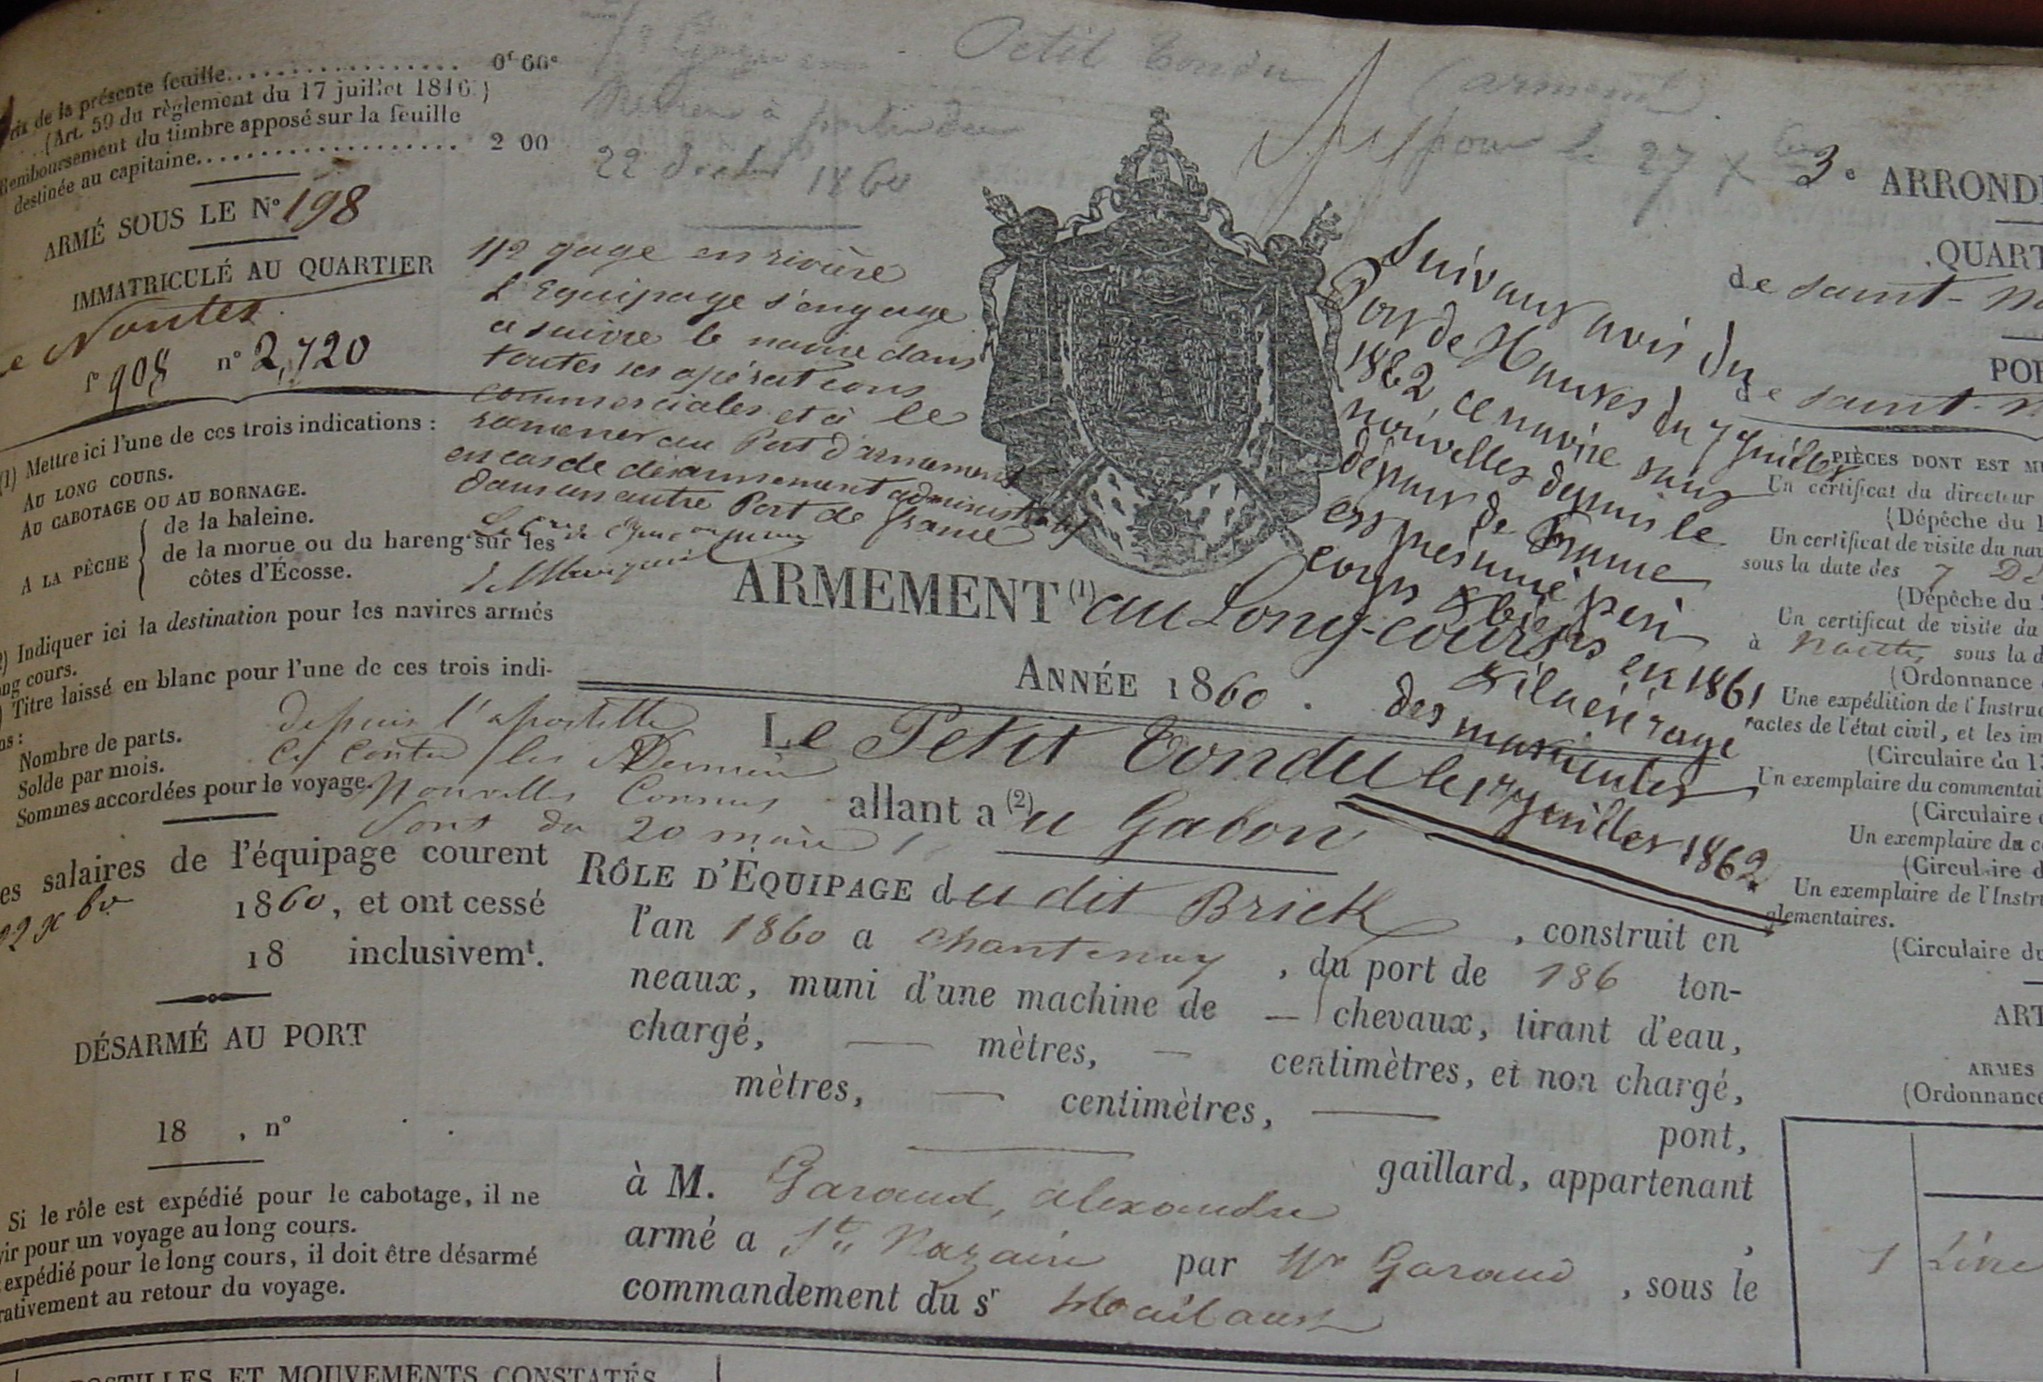 Prix de la présente feuille................. 0f 66c
(Art. 59 du règlement du 17 juillet 1816.)
Remboursement du timbre apposé sur la feuille
destinée au capitaine................... 2 00
ARMÉ SOUS LE N° 198
IMMATRICULÉ AU QUARTIER
de Nantes
f° 908 n° 2,720
(1) Mettre ici l'une de ces trois indications :
AU LONG COURS.
AU CABOTAGE OU AU BORNAGE.
A LA PÊCHE
de la baleine.
de la morue ou du hareng sur les
côtes d'Écosse.
2) Indiquer ici la destination pour les navires armés
ong cours.
) Titre laissé en blanc pour l'une de ces trois indi-
ns :
Nombre de parts.
Solde par mois.
Sommes accordées pour le voyage.
depuis l'apostille
ci contre les Dernières
Nouvelles Connues
Sont du 20 mars
es salaires de l'équipage courent
22 Xbre 1860, et ont cessé
18 inclusivemt.
DÉSARMÉ AU PORT
18 , n°
Si le rôle est expédié pour le cabotage, il ne
vir pour un voyage au long cours.
expédié pour le long cours, il doit être désarmé
rativement au retour du voyage.
à partir du
22 1860
Petit Tondu (armemt)
pour le 27 Xbre
1/2 gage en rivière
L'Equipage s'engage
à suivre le navire dans
toutes ses opérations
commerciales et à le
ramener au Port d'armement
en cas de désarmement administratif
dans un autre Port de france
Suivant avis du
Port de Nantes du 7 Juillet
1862, ce navire sans
nouvelles depuis le
départ de
est présumé péri
corps & biens en 1861
& il a été rayé
des matricules
le 1er Juillet 1862.
ARMEMENT (1) au Long-cours
ANNÉE 1860.
Le Petit Tondu
allant a (2) u Gabon
RÔLE D'ÉQUIPAGE du dit Brick, construit en
l'an 1860 a chantenay, du port de 186 ton-
neaux, muni d'une machine de — chevaux, tirant d'eau,
chargé, — mètres, — centimètres, et non chargé,
mètres, — centimètres, — pont,
gaillard, appartenant
à M. Garaud, alexandre ,
armé a St Nazaire par Mr Garaud, sous le
commandement du sr
3e ARROND
QUART
de saint-n
POR
de saint-n
PIÈCES DONT EST M
Un certificat du directeur
(Dépêche du 1
Un certificat de visite du nav
sous la date des 7 Dé
(Dépêche du
Un certificat de visite du
à Nantes, sous la d
(Ordonnance
Une expédition de l'Instruc
ractes de l'état civil, et les im
(Circulaire du 13
Un exemplaire du commentai
(Circulaire
Un exemplaire du c
(Circulaire d
Un exemplaire de l'Instr
glementaires.
(Circulaire du
ART
ARMES
(Ordonnance
1
OSTILLES ET MOUVEMENTS CONSTATÉS